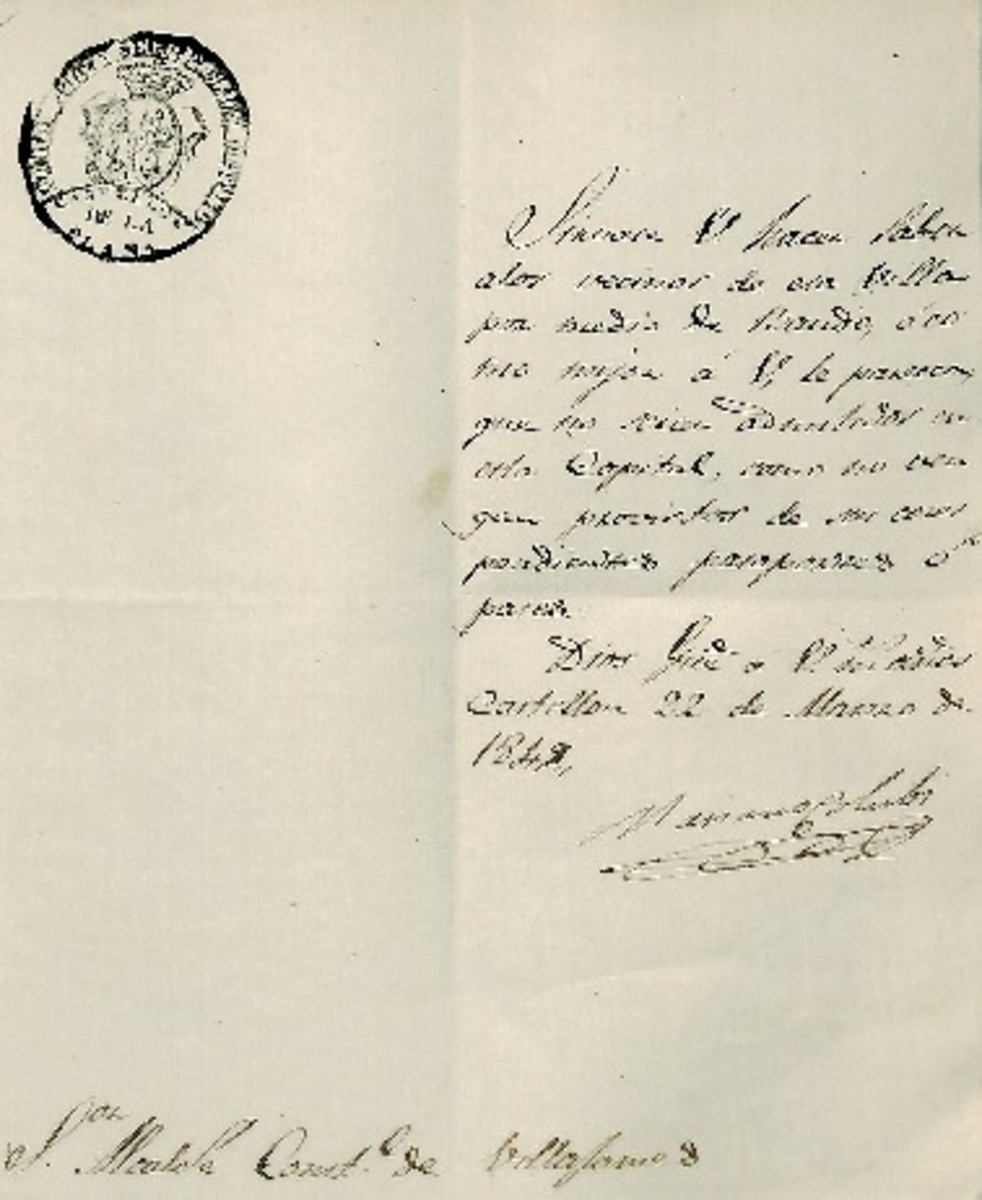 DE LA
PLANA
Sirvase V. hacer saber
alos vecinos de esa Villa
por medio de Bando, ó co
mo mejor á V. le parezca,
que no sean admitidos en
esta Capital, como no ven
gan provistos de sus corres
pondientes pasaportes ó
pases.
Dios gue a V. m.s años
Castellon 22 de Marzo de
184
Mariano
S.or Alcalde Const.l de Villafames